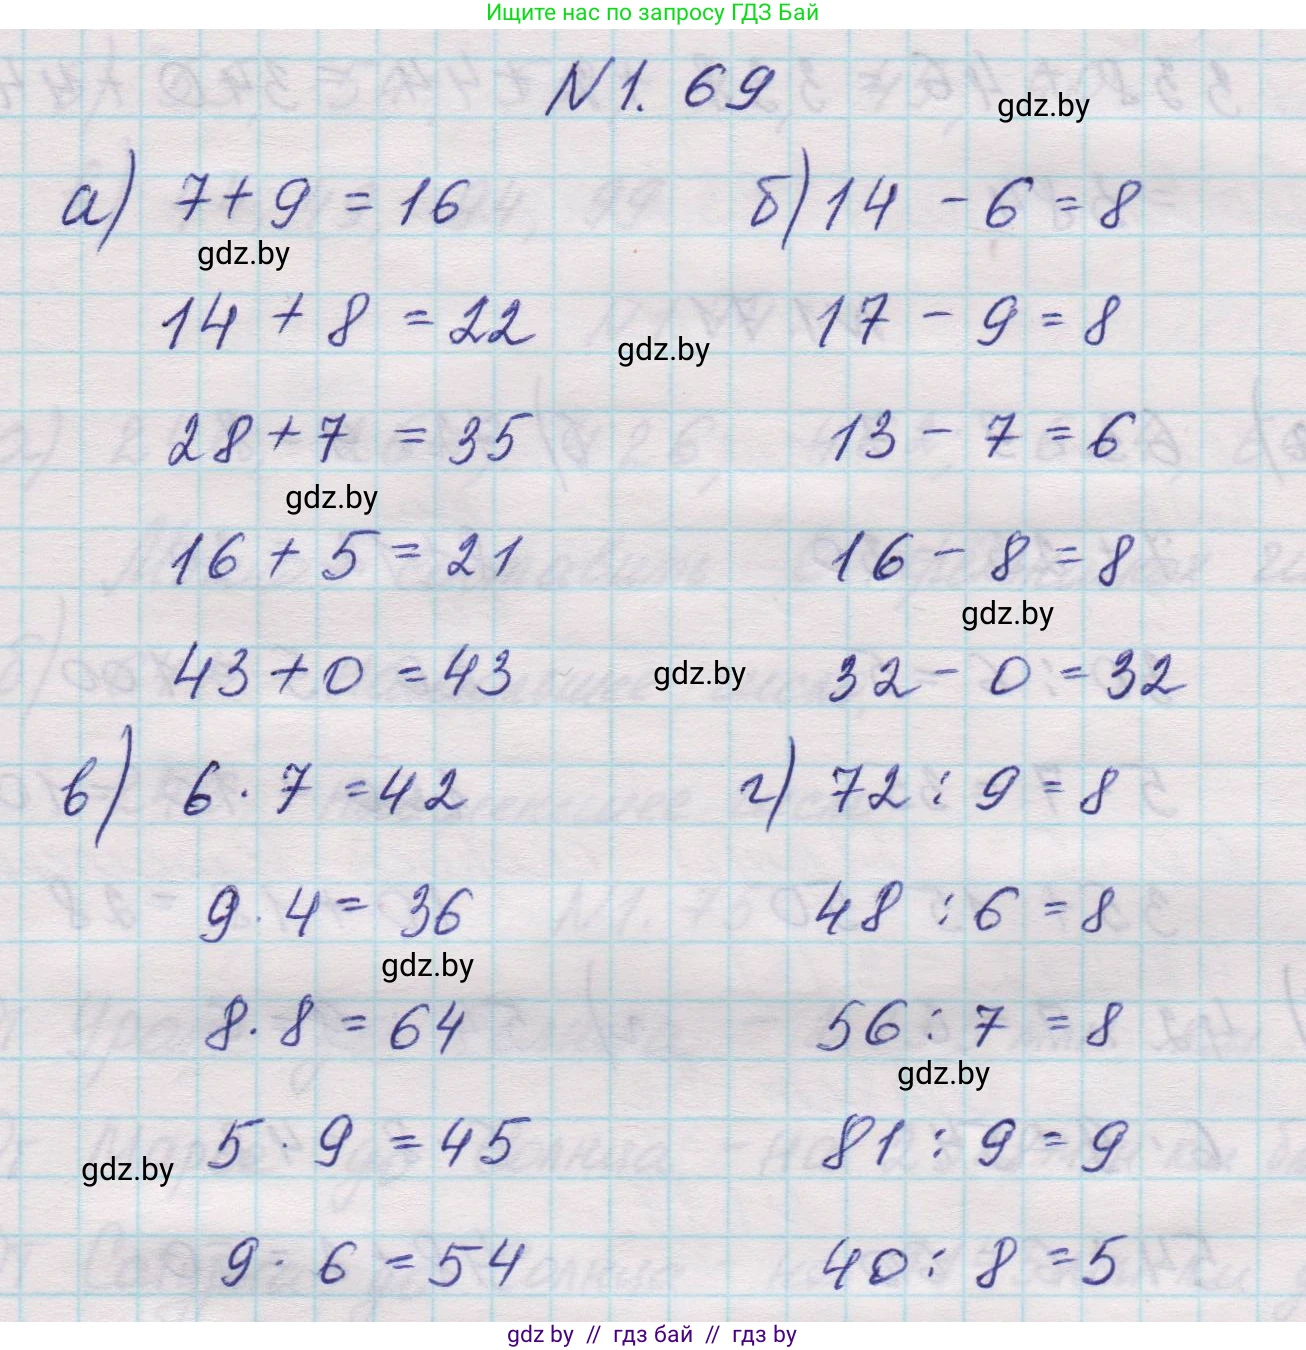 Ищите нас по запросу ГДЗ Бай
N1. 69
gdz.by
а) 7+9 = 16
б) 14 - 6 = 8
gdz.by
14 + 8 = 22
17 - 9 = 8
gdz.by
28 + 7 = 35
13 - 7 = 6
gdz.by
16 + 5 = 21
16 - 8 = 8
gdz.by
43 + 0 = 43
gdz.by
32 - 0 = 32
в) 6 · 7 = 42
г) 72 : 9 = 8
9 · 4 = 36
48 : 6 = 8
gdz.by
8 · 8 = 64
56 : 7 = 8
gdz.by
5 · 9 = 45
81 : 9 = 9
gdz.by
9 · 6 = 54
40 : 8 = 5
gdz by // гдз бай // гдз by